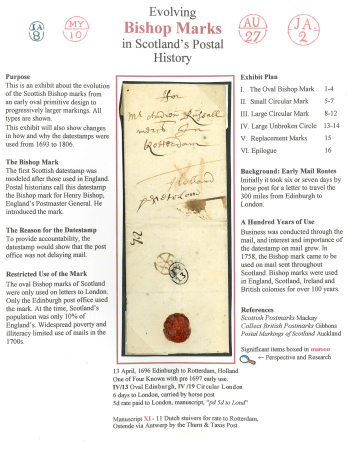 Evolving
Bishop Marks
in Scotland's Postal
History
IA
8
MY
10
AU
27
JA
2
Purpose
This is an exhibit about the evolution
of the Scottish Bishop marks from
an early oval primitive design to
progressively larger markings. All
types are shown.
This exhibit will also show changes
in how and why the datestamps were
used from 1693 to 1806.
The Bishop Mark
The first Scottish datestamp was
modeled after those used in England.
Postal historians call this datestamp
the Bishop mark for Henry Bishop,
England's Postmaster General. He
introduced the mark.
The Reason for the Datestamp
To provide accountability, the
datestamp would show that the post
office was not delaying mail.
Restricted Use of the Mark
The oval Bishop marks of Scotland
were only used on letters to London.
Only the Edinburgh post office used
the mark. At the time, Scotland's
population was only 10% of
England's. Widespread poverty and
illiteracy limited use of mails in the
1700s.
For
Mr Andrew Russall
Rotterdam
Holland
13 April, 1696 Edinburgh to Rotterdam, Holland
One of Four Known with pre 1697 early use.
IV/13 Oval Edinburgh, IV /19 Circular London
6 days to London, carried by horse post
5d rate paid to London, manuscript, "pd 5d to Lond"
Manuscript XI - 11 Dutch stuivers for rate to Rotterdam,
Ostende via Antwerp by the Thurn & Taxis Post
Exhibit Plan
I. The Oval Bishop Mark 1-4
II. Small Circular Mark 5-7
III. Large Circular Mark 8-12
IV. Large Unbroken Circle 13-14
V. Replacement Marks 15
VI. Epilogue 16
Background: Early Mail Routes
Initially it took six or seven days by
horse post for a letter to travel the
300 miles from Edinburgh to
London.
A Hundred Years of Use
Business was conducted through the
mail, and interest and importance of
the datestamp on mail grew. In
1758, the Bishop mark came to be
used on mail sent throughout
Scotland. Bishop marks were used
in England, Scotland, Ireland and
British colonies for over 100 years.
References
Scottish Postmarks Mackay
Collect British Postmarks Gibbons
Postal Markings of Scotland Auckland
Significant items boxed in maroon
← Perspective and Research